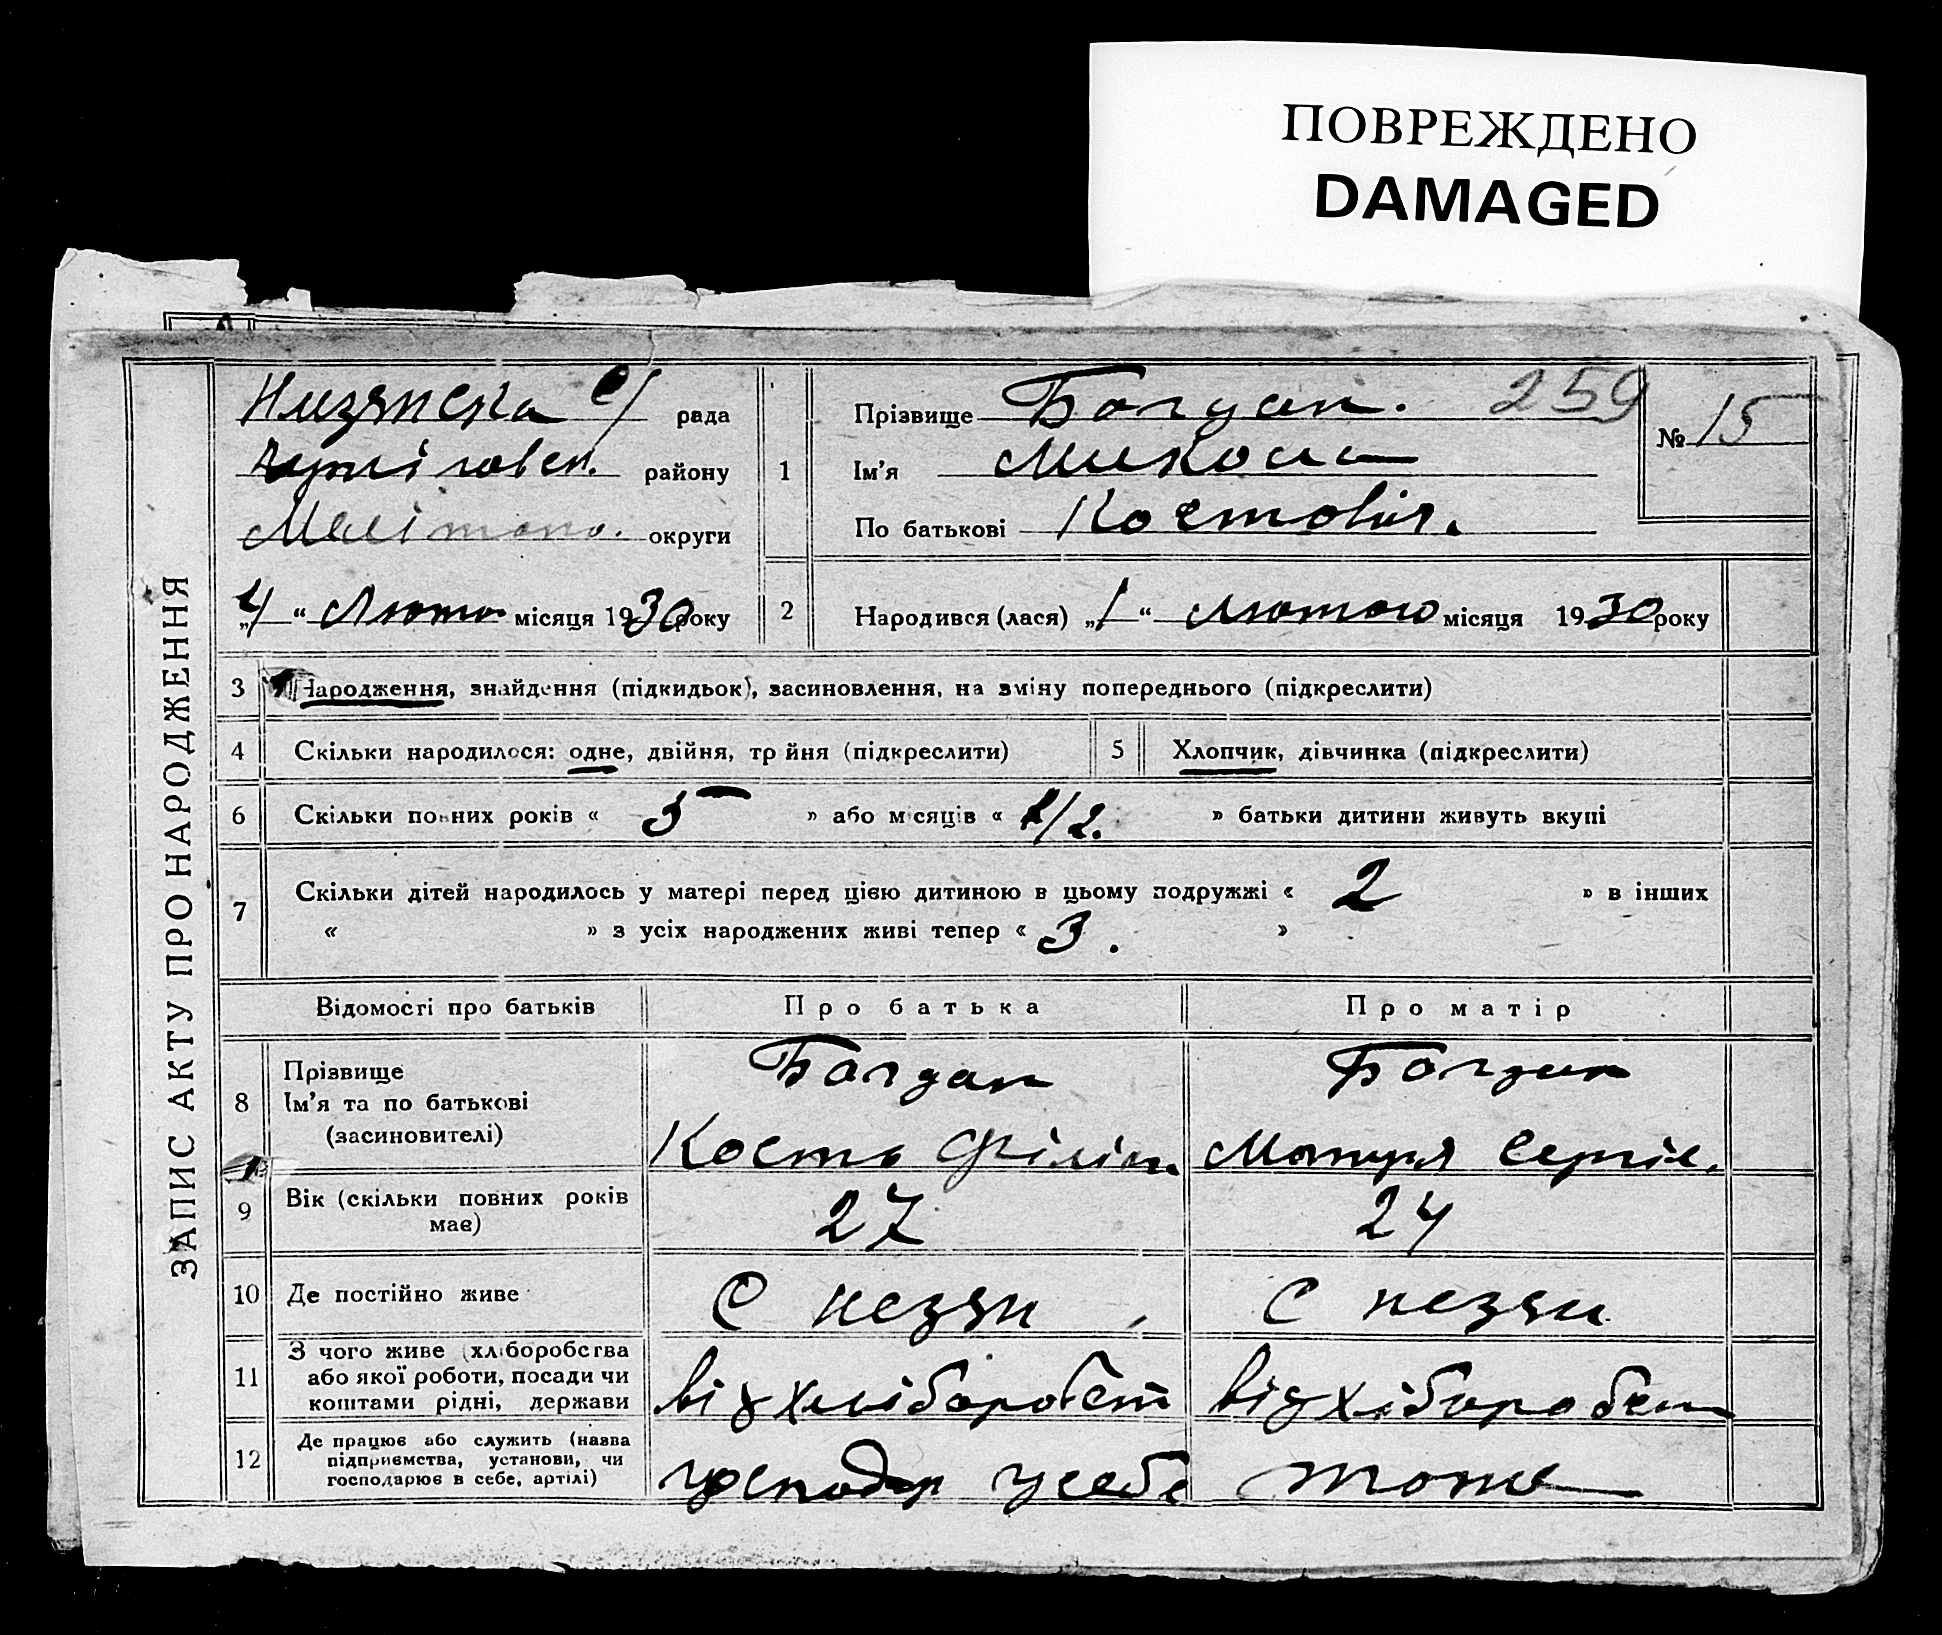 ПОВРЕЖДЕНО
DAMAGED
ЗАПИС АКТУ ПРО НАРОДЖЕННЯ
с/ рада
району
Мелітопо. округи
„4“ Люто місяця 1930 року
259
№ 15
1 Прізвище Богдан.
Ім'я Микола
По батькові Костовіч.
2 Народився (лася) „1“ Лютого місяця 1930 року
3 Народження, знайдення (підкидьок), засиновлення, на зміну попереднього (підкреслити)
4 Скільки народилося: одне, двійня, трійня (підкреслити) 5 Хлопчик, дівчинка (підкреслити)
6 Скільки повних років « 5 » або місяців « 1/2. » батьки дитини живуть вкупі
7 Скільки дітей народилось у матері перед цією дитиною в цьому подружжі « 2 » в інших
« » з усіх народжених живі тепер « 3. »
Відомості про батьків Про батька Про матір
8 Прізвище Богдан Богдан
Ім'я та по батькові
(засиновителі) Кость Філіп. Мотря Сергіє.
9 Вік (скільки повних років
має) 27 24
10 Де постійно живе С незян С незян
11 З чого живе (хліборобства
або якої роботи, посади чи
коштами рідні, держави від хліборобст від хіборобст
12 Де працює або служить (назва
підприємства, установи, чи
господарює в себе, артілі) господар у себе тоже